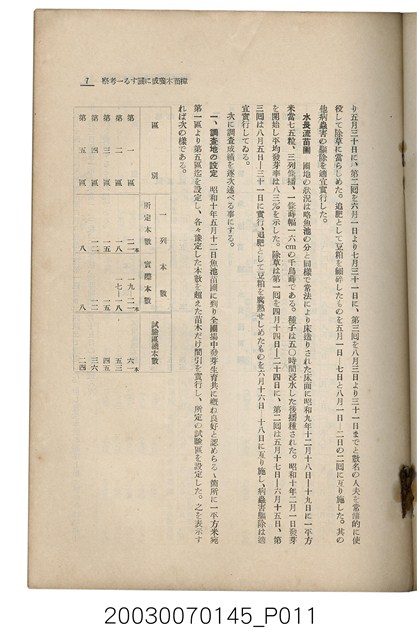 り五月三十日に、第二囘を六月一日より七月三十一日に、第三囘を八月三日より三十一日までと數名の人夫を常備的に使
役して除草に當らしめた。追肥として豆粕を細碎したものを五月一日―七日と八月一日―二日の二囘に亙り施した。其の
他病蟲害の驅除を適宜實行した。
水景流苗圃 圃地の狀況は略魚池の分と同樣で常法により床造りされた床面に昭和九年十二月十八日―十九日に一平方
米當七五粒、三列條播、一條蒔幅一六cmの千鳥蒔である。種子は五〇時間浸水した後播種された。昭和十年二月一日發芽
を開始し平均發芽率は八三%を示した。除草は第一囘を四月十四日―二十四日に、第二囘は五月十七日―六月十五日、第
三囘は八月五日―三十一日に實行、追肥として豆粕を腐熟せしめたものを六月十六日―十八日に亙り施し、病蟲害驅除は適
宜實行してゐる。
次に調査成績を逐次述べる事にする。
一、調査地の設定 昭和十年五月十二日魚池苗圃に到り全圃場中發芽生育共に概ね良好と認めらるゝ箇所に一平方米宛
第一區より第五區迄を設定し、各々豫定した本數を超えた苗木だけ間引を實行し、所定の試驗區を設定した。之を表示す
れば次の樣である。
區 別
一列本數
所定本數 實際本數
試驗區總本數
第一區 二一本 一九、二一本 六一本
第二區 一八 一七―八 五三
第三區 一五 一五 四五
第四區 一二 一二 三六
第五區 八 八 二四
樟苗木養成に關する一考察
7
20030070145_P011